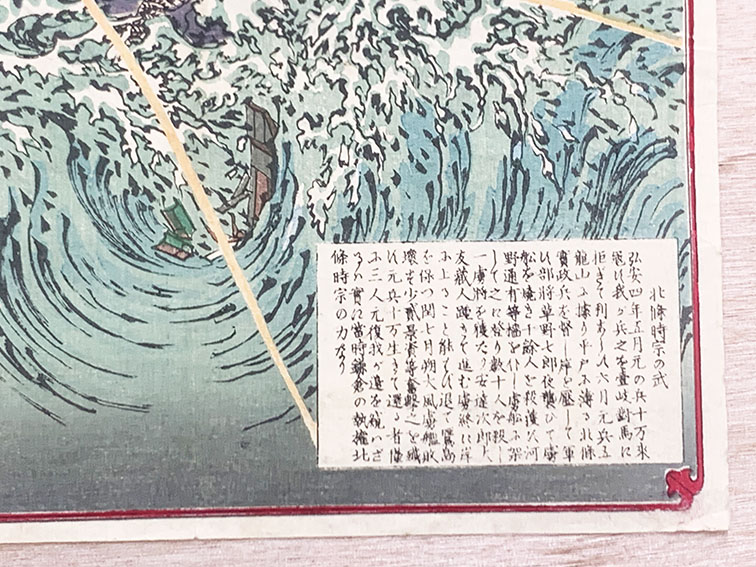 北條時宗の武
弘安四年五月元の兵十万来
冦す我が兵之を壹岐對馬に
拒ぎて利あらず六月元兵五
龍山に據り平戸に薄る北條
實政兵を督し岸を壓して軍
す部将草野七郎夜襲ひて虜
船を焼き十餘人を殺獲す河
野通有等檣を仆し虜船に架
して之に登り数十人を殺し
一虜将を獲たり安達次郎大
友蔵人踵ぎて進む虜終に岸
に上ること能はず退て鷹島
を保つ閏七月朔大風虜艦敗
壊す少貳景資等奮撃之を殲
す元兵十万生きて還る者僅
に三人元復我が邊を窺はざ
るハ實に當時鎌倉の執權北
條時宗の力なり